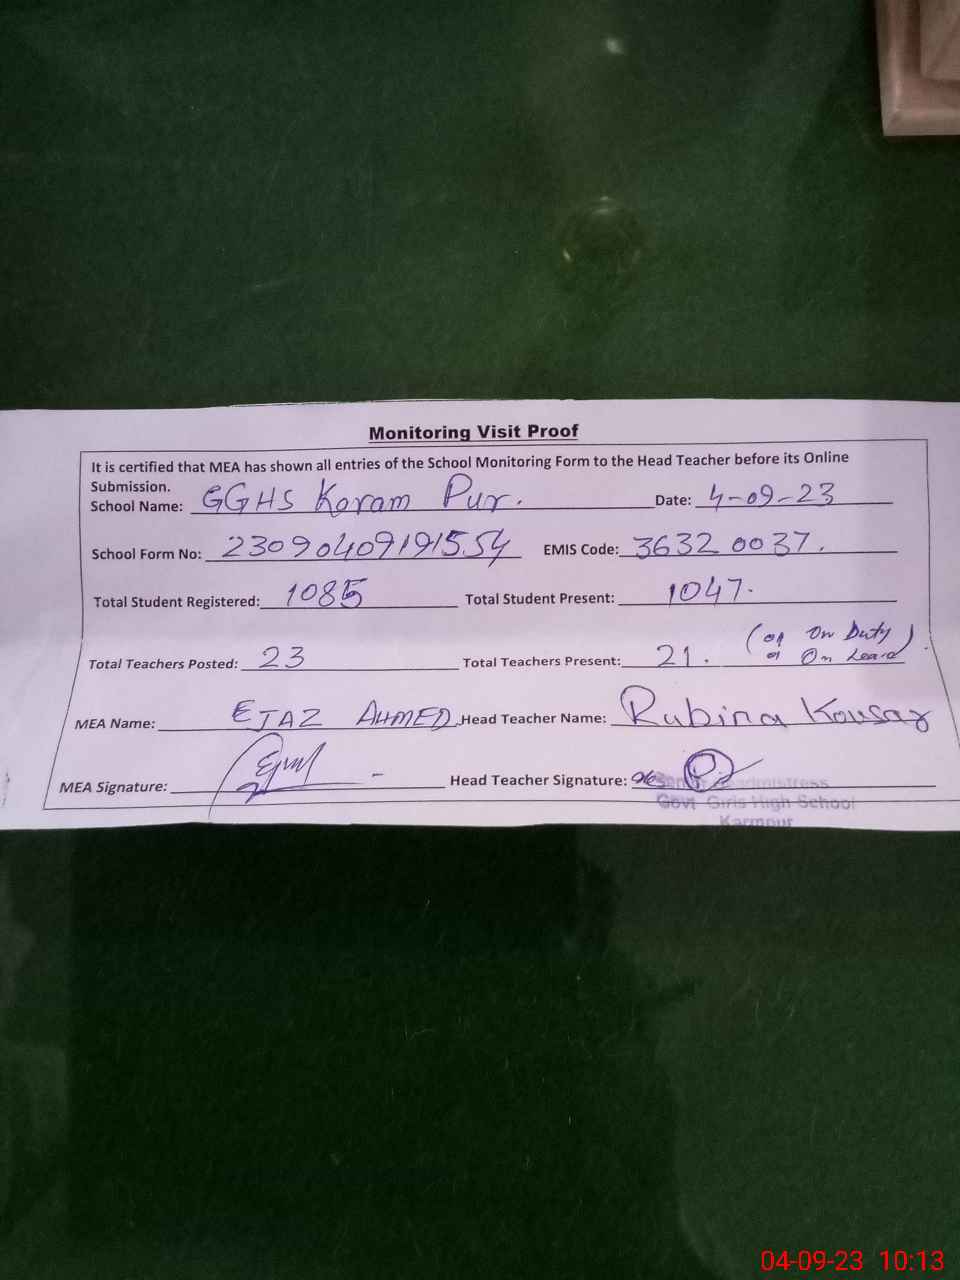 Monitoring Visit Proof
It is certified that MEA has shown all entries of the School Monitoring Form to the Head Teacher before its Online
Submission.
School Name: GGHS Karam Pur. Date: 4-09-23
School Form No: 23090409191554 EMIS Code: 36320037.
Total Student Registered: 1085 Total Student Present: 1047.
Total Teachers Posted: 23 Total Teachers Present: 21. (01 On Duty
01 On Leave)
MEA Name: EJAZ AHMED Head Teacher Name: Rubina Kousar
MEA Signature: Head Teacher Signature:
Senior Headmistress
Govt Girls High School
Karmpur
04-09-23 10:13